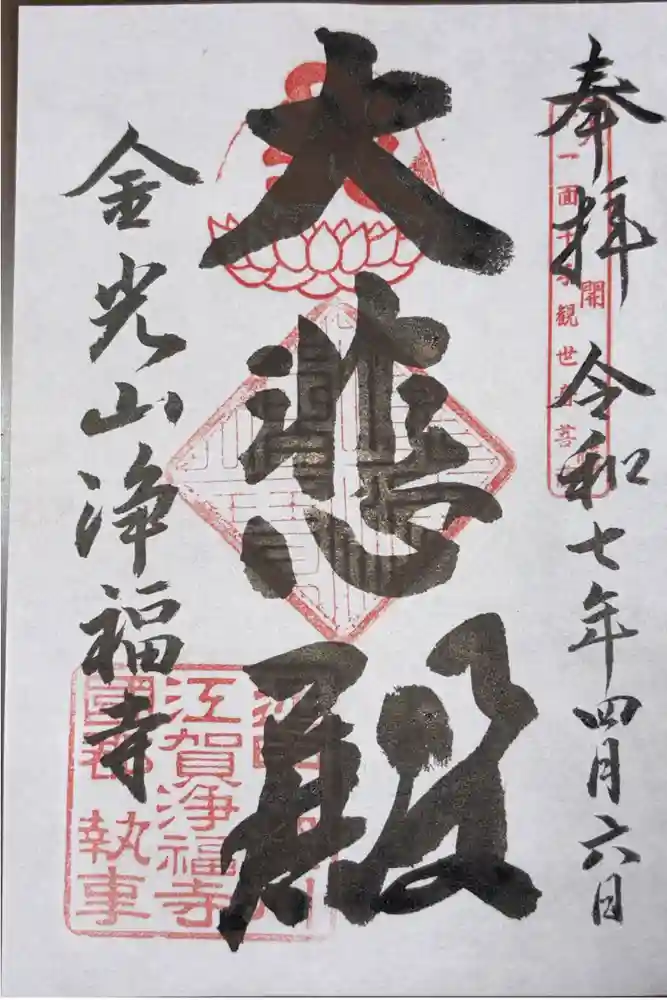 奉拝 令和七年四月六日
開
一面十 観世音菩
大悲殿
金光山浄福寺
江賀浄福寺
國 執事